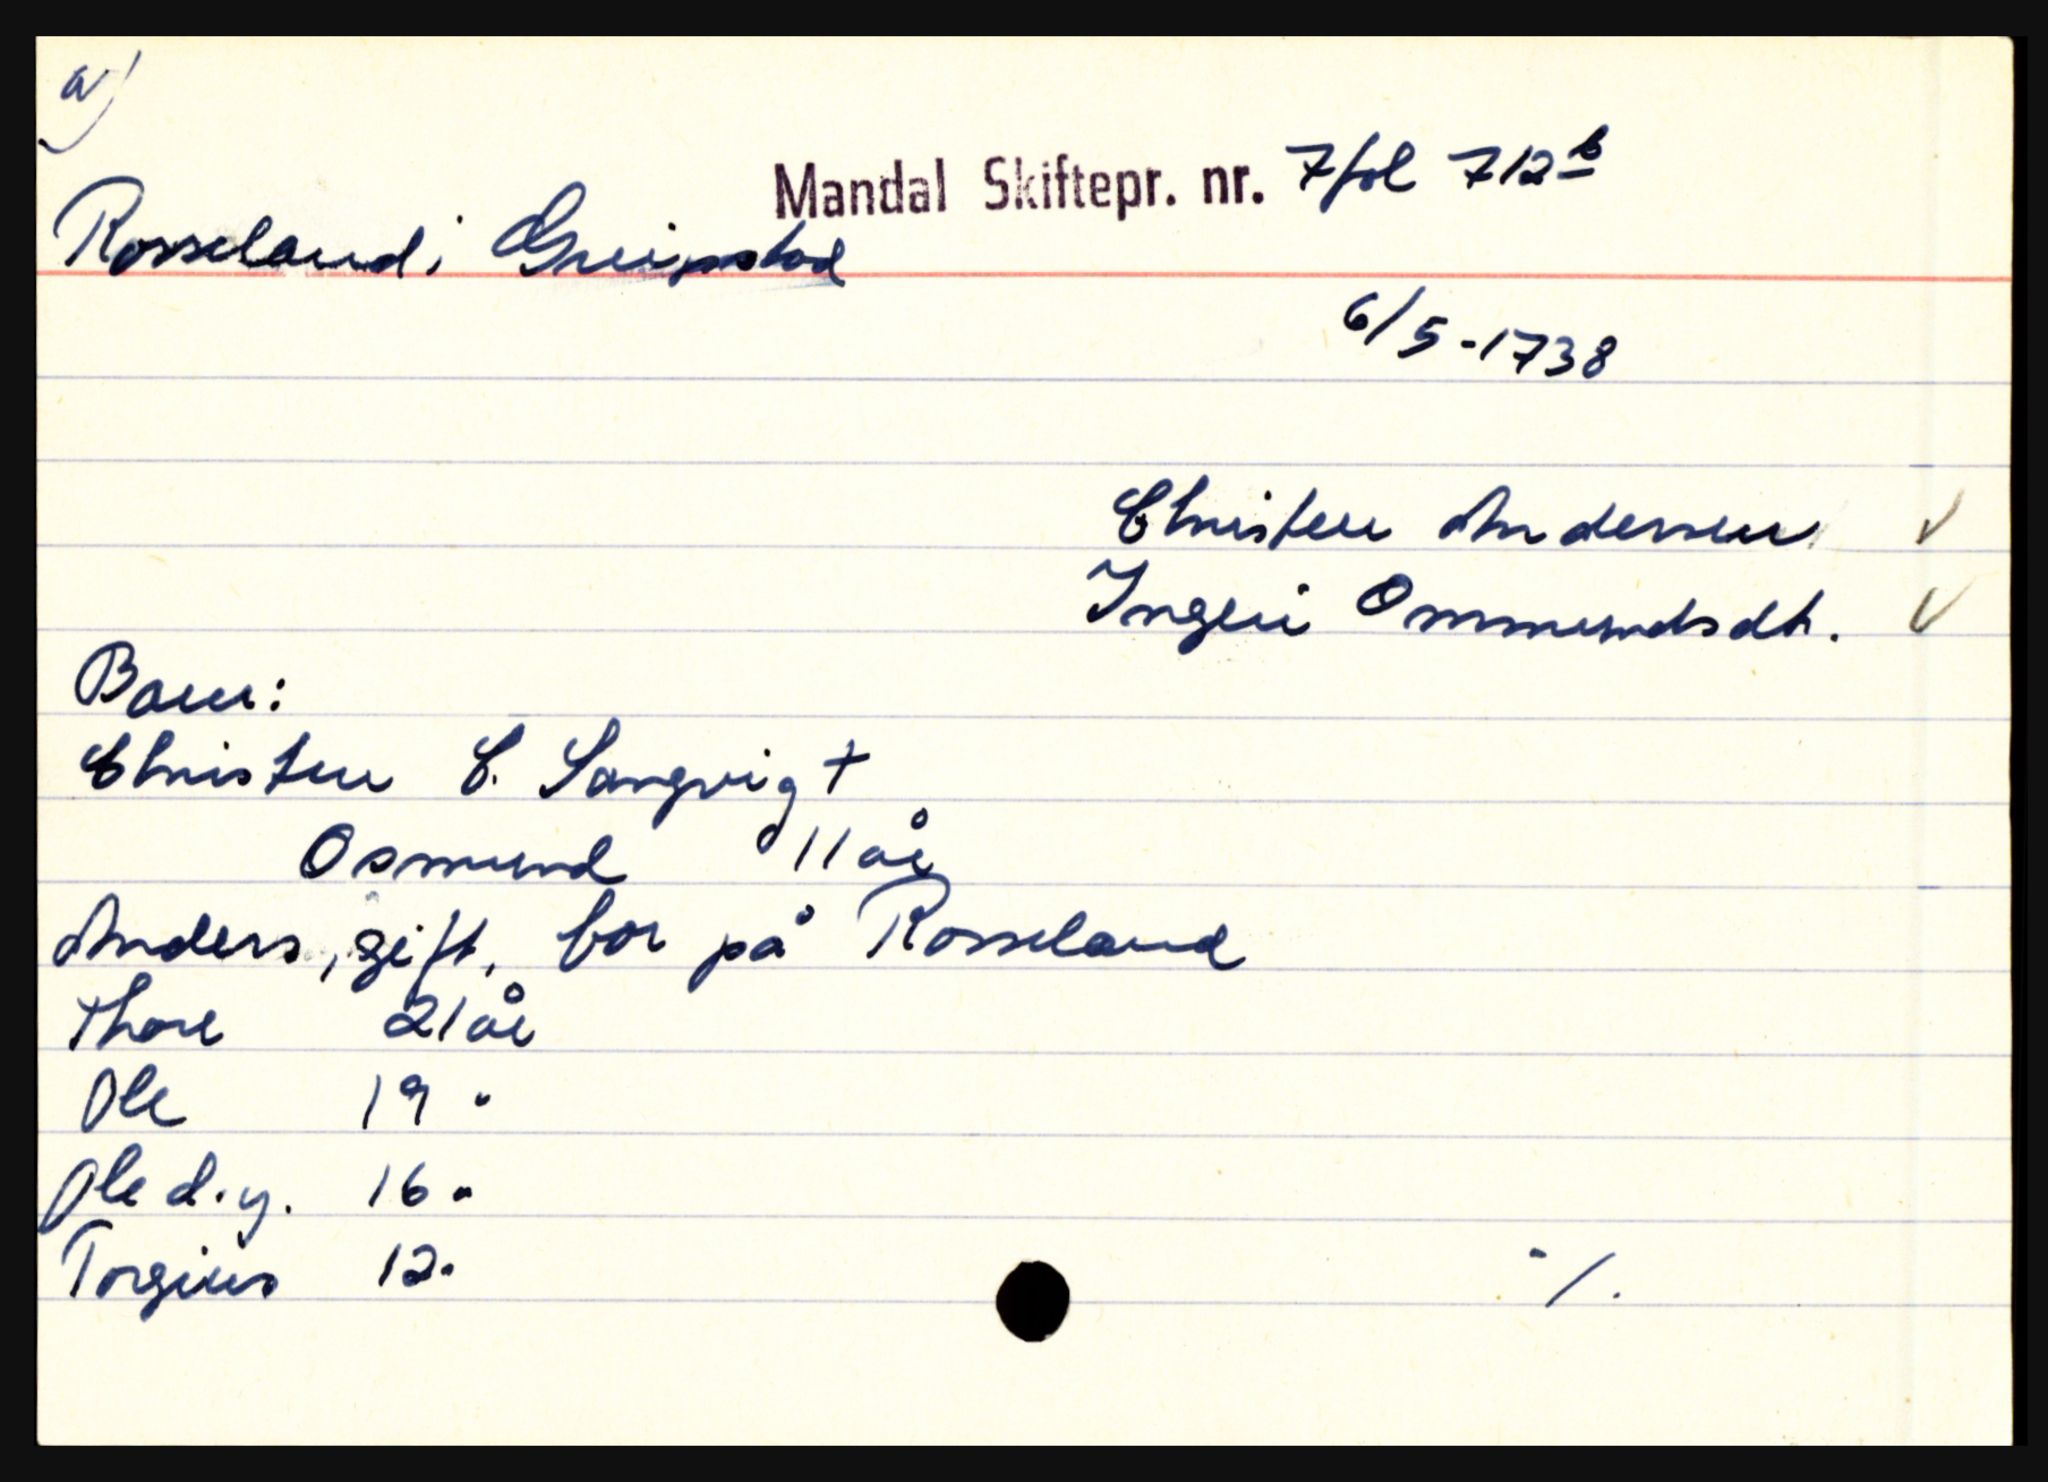 a)
Mandal Skiftepr. nr. 7 fol 712b
Rosseland i Greipstad
6/5-1738
Christen Andersen ✓
Ingeri Ommundsdtr. ✓
Barn:
Christen C. Sangvig +
Osmund 11 år
Anders, gift, bor på Rosseland
Thore 21 år
Ole 19 "
Ole d.y. 16 "
Torgius 12 "
./.